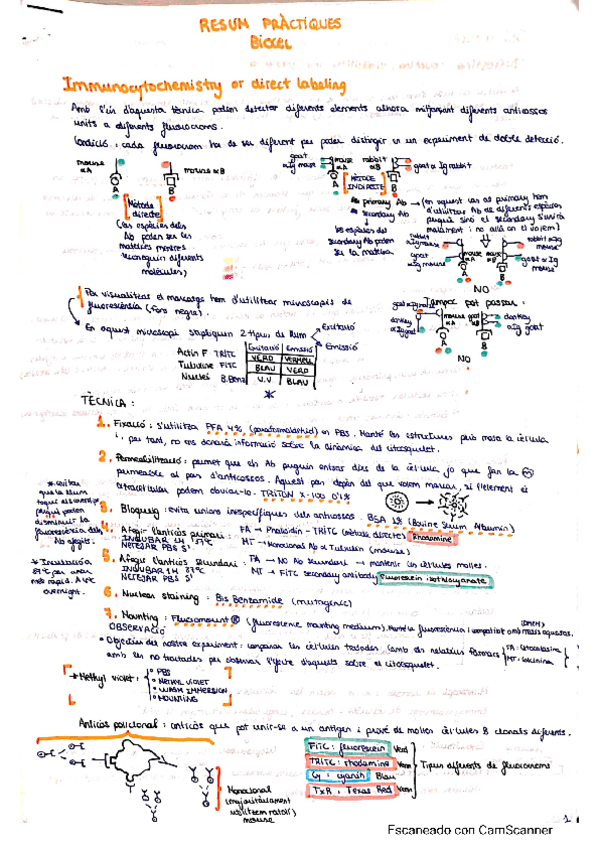 RESUM PRÀCTIQUES
BIOCEL
Immunocytochemistry or direct labeling
Amb l'ús d'aquesta tècnica podem detectar diferents elements alhora mitjançant diferents anticossos
units a diferents fluorocroms.
Condició: cada fluorocrom ha de ser diferent per poder distingir en un experiment de doble detecció.
mouse αA
mouse αB
A
B
Mètode directe
(les espècies dels
Ab poden ser les
mateixes mentre
reconeguin diferents
molècules)
goat αIg mouse
mouse αA
rabbit αB
goat α Ig rabbit
MÈTODE INDIRECTE
A
B
primary Ab → (en aquest cas al primary hem
d'utilitzar Ab de diferents espècies
secondary Ab
les espècies del
secondary Ab poden
ser la mateixa
goat αIg mouse
goat α Ig mouse
NO
Tampoc pot passar:
donkey αIg goat
donkey αIg goat
NO
Per visualitzar el marcatge hem d'utilitzar microscopis de
fluorescència (fons negre).
En aquest microscopi s'apliquen 2 tipus de llum
Excitació
Emissió
Excitació Emissió
Actin F TRITC VERD VERMELL
Tubulina FITC BLAU VERD
Nucleus B.Benz U.V BLAU
*
TÈCNICA:
1. Fixació: s'utilitza PFA 4% (paraformaldehid) en PBS. Manté les estructures però mata la cèl·lula
i, per tant, no ens donarà informació sobre la dinàmica del citosquelet.
2. Permeabilització: permet que els Ab puguin entrar dins de la cèl·lula ja que fan la
permeable al pas d'anticossos. Aquest pas depèn del que volem marcar, si l'element és
extracel·lular podem obviar-lo. TRITON X-100 0'1%
3. Bloqueig: evita unions inespecífiques dels anticossos. BSA 1% (Bovine Serum Albumin)
4. Afegir l'anticòs primari: FA → Phalloidin - TRITC (mètode directe) Rhodamine
INCUBAR 1H 37ºC
NETEJAR PBS 5'
MT → Monoclonal Ab α Tubulin (mouse)
5. Afegir l'anticòs secundari: FA → NO Ab secundari → mantenir les cèl·lules molles.
INCUBAR 1H 37ºC
NETEJAR PBS 5'
MT → FITC secondary antibody Fluorescein isothiocyanate
6. Nuclear staining: Bis Benzamide (mutagenic)
7. Mounting: Fluoromount ® (fluorescence mounting medium).
OBSERVACIÓ
* evitar
que la llum
* Incubació a
37ºC per anar
més ràpid. A 4ºC
overnight.
• Objectiu del nostre experiment: comparar les cèl·lules tractades (amb els relatius fàrmacs
amb les no tractades per observar l'efecte d'aquests sobre el citosquelet.
* Methyl violet:
• PBS
• METHYL VIOLET
• WASH IMMERSION
• MOUNTING
Anticòs policlonal: anticòs que pot unir-se a un antigen i prové de moltes cèl·lules B clonals diferents.
Monoclonal
(majoritàriament
mouse
FITC: fluorescein Verd
TRITC: rhodamine Verm
Cy: cyanin Blau
TxR: Texas Red Verm
Tipus diferents de fluorocroms
1
Escaneado con CamScanner